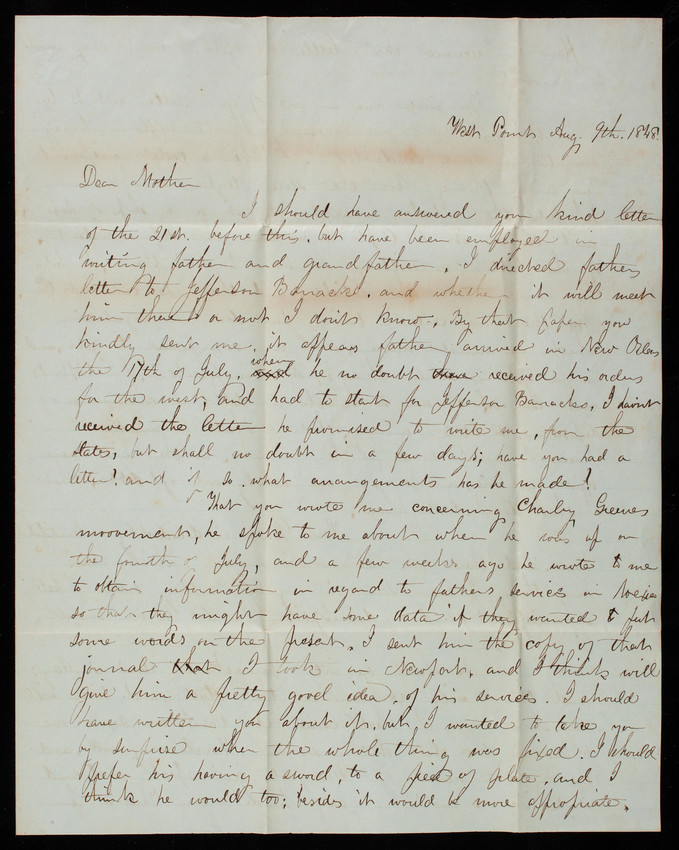 West Point Aug. 9th. 1848.
Dear Mother
I should have answered your kind letter
of the 21st. before this, but have been employed in
writing father and grandfather. I directed fathers
letter to Jefferson Barracks, and whether it will meet
him there or not I don't know. By that paper you
kindly sent me, it appears father arrived in New Orleans
the 17th of July, when he no doubt received his orders
for the west, and had to start for Jefferson Barracks, I havnt
received the letter he promised to write me, from the
states, but shall no doubt in a few days; have you had a
letter? and if so what arrangements has he made?
What you wrote me concerning Charley Greenes
moovement, he spoke to me about when he was up on
the fourth of July, and a few weeks ago he wrote to me
to obtain information in regard to fathers services in Mexico
so that they might have some data if they wanted to put
some words on the present. I sent him the copy of that
journal I took in Newport, and I think will
give him a pretty good idea, of his services. I should
have written you about it, but I wanted to take you
by surprise when the whole thing was fixed. I should
prefer his having a sword, to a piece of plate, and I
think he would too; besides it would be more appropriate.